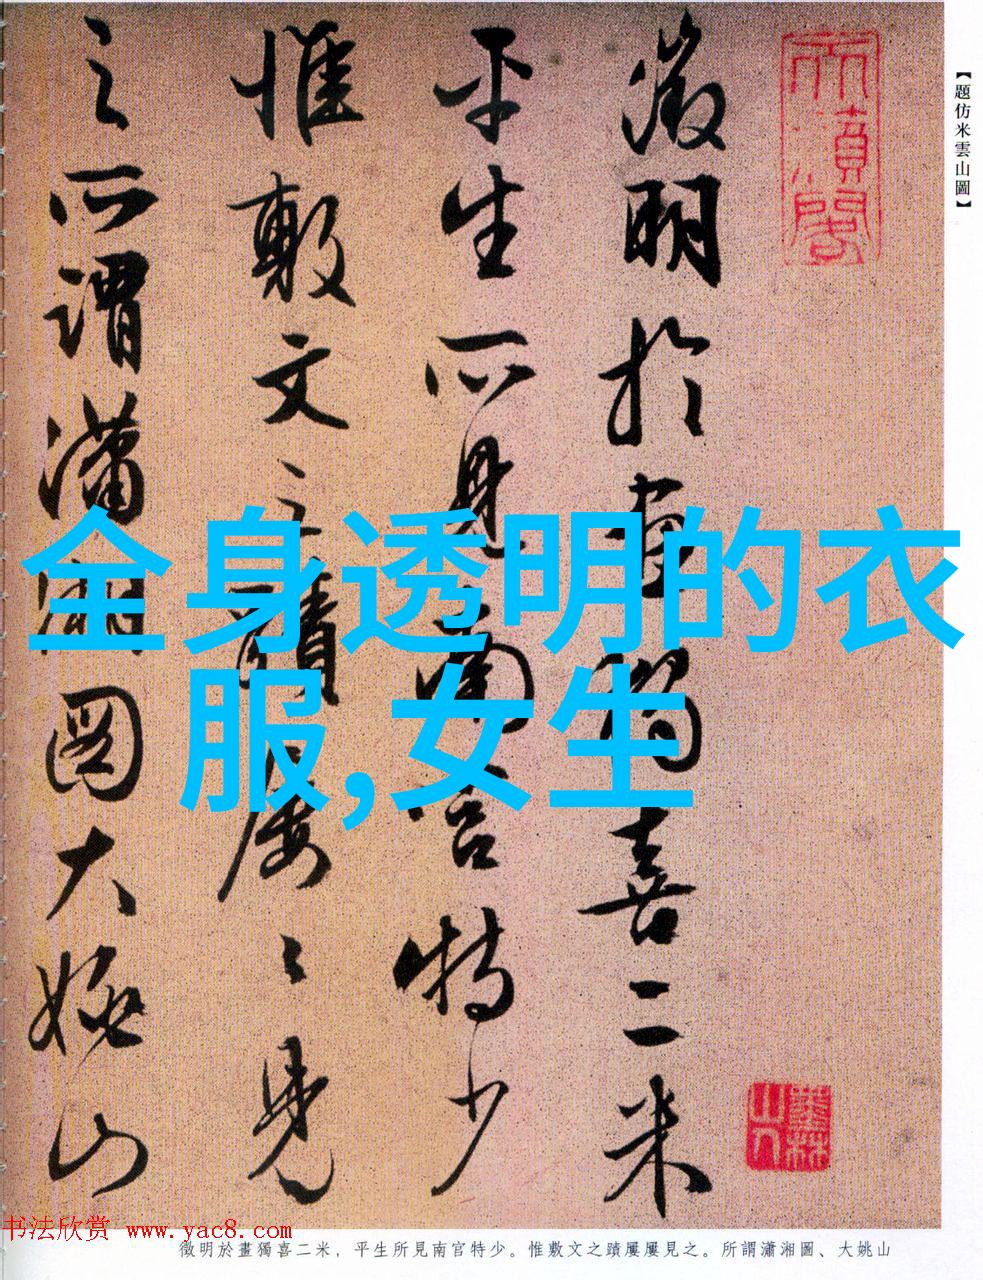 【題仿米雲山圖】
徵明於畫獨喜二米
平生所見南宫特少
惟敷文之蹟屢〻見
之所謂瀟湘圖大姚山
全身透明的衣
服,女生
书法欣赏 www.yac8.com
徵明於畫獨喜二米，平生所見南官特少。惟敷文之蹟屢屢見之。所謂瀟湘圖、大姚山